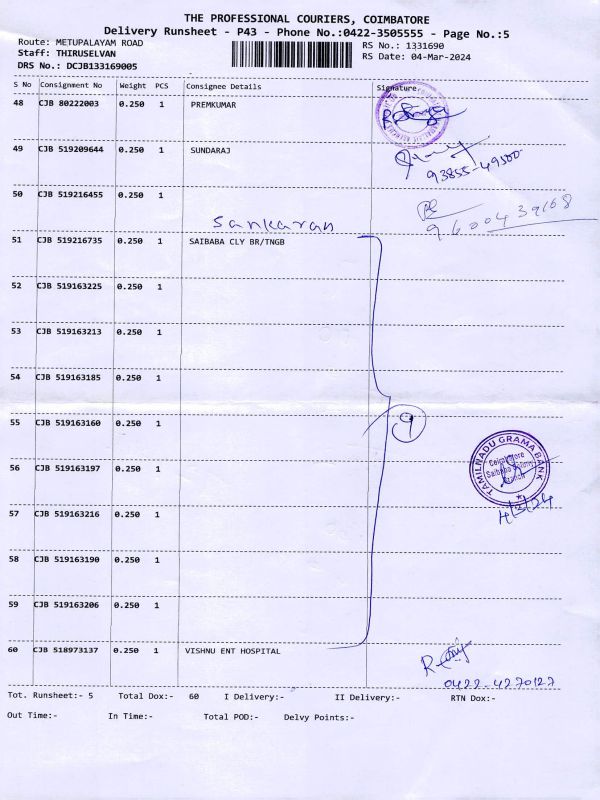 THE PROFESSIONAL COURIERS, COIMBATORE
Delivery Runsheet - P43 - Phone No.:0422-3505555 - Page No.:5
Route: METUPALAYAM ROAD RS No.: 1331690
Staff: THIRUSELVAN RS Date: 04-Mar-2024
DRS No.: DCJB133169005
S No Consignment No Weight PCS Consignee Details Signature
48 CJB 80222003 0.250 1 PREMKUMAR
49 CJB 519209644 0.250 1 SUNDARAJ
93855-49500
50 CJB 519216455 0.250 1
Sankaran 9600439168
51 CJB 519216735 0.250 1 SAIBABA CLY BR/TNGB
52 CJB 519163225 0.250 1
53 CJB 519163213 0.250 1
54 CJB 519163185 0.250 1
55 CJB 519163160 0.250 1
9
56 CJB 519163197 0.250 1
TAMILNADU GRAMA BANK
Coimbatore
Saibaba Colony
Branch
4/3/24
57 CJB 519163216 0.250 1
58 CJB 519163190 0.250 1
59 CJB 519163206 0.250 1
60 CJB 518973137 0.250 1 VISHNU ENT HOSPITAL
0422-4270127
Tot. Runsheet:- 5 Total Dox:- 60 I Delivery:- II Delivery:- RTN Dox:-
Out Time:- In Time:- Total POD:- Delvy Points:-